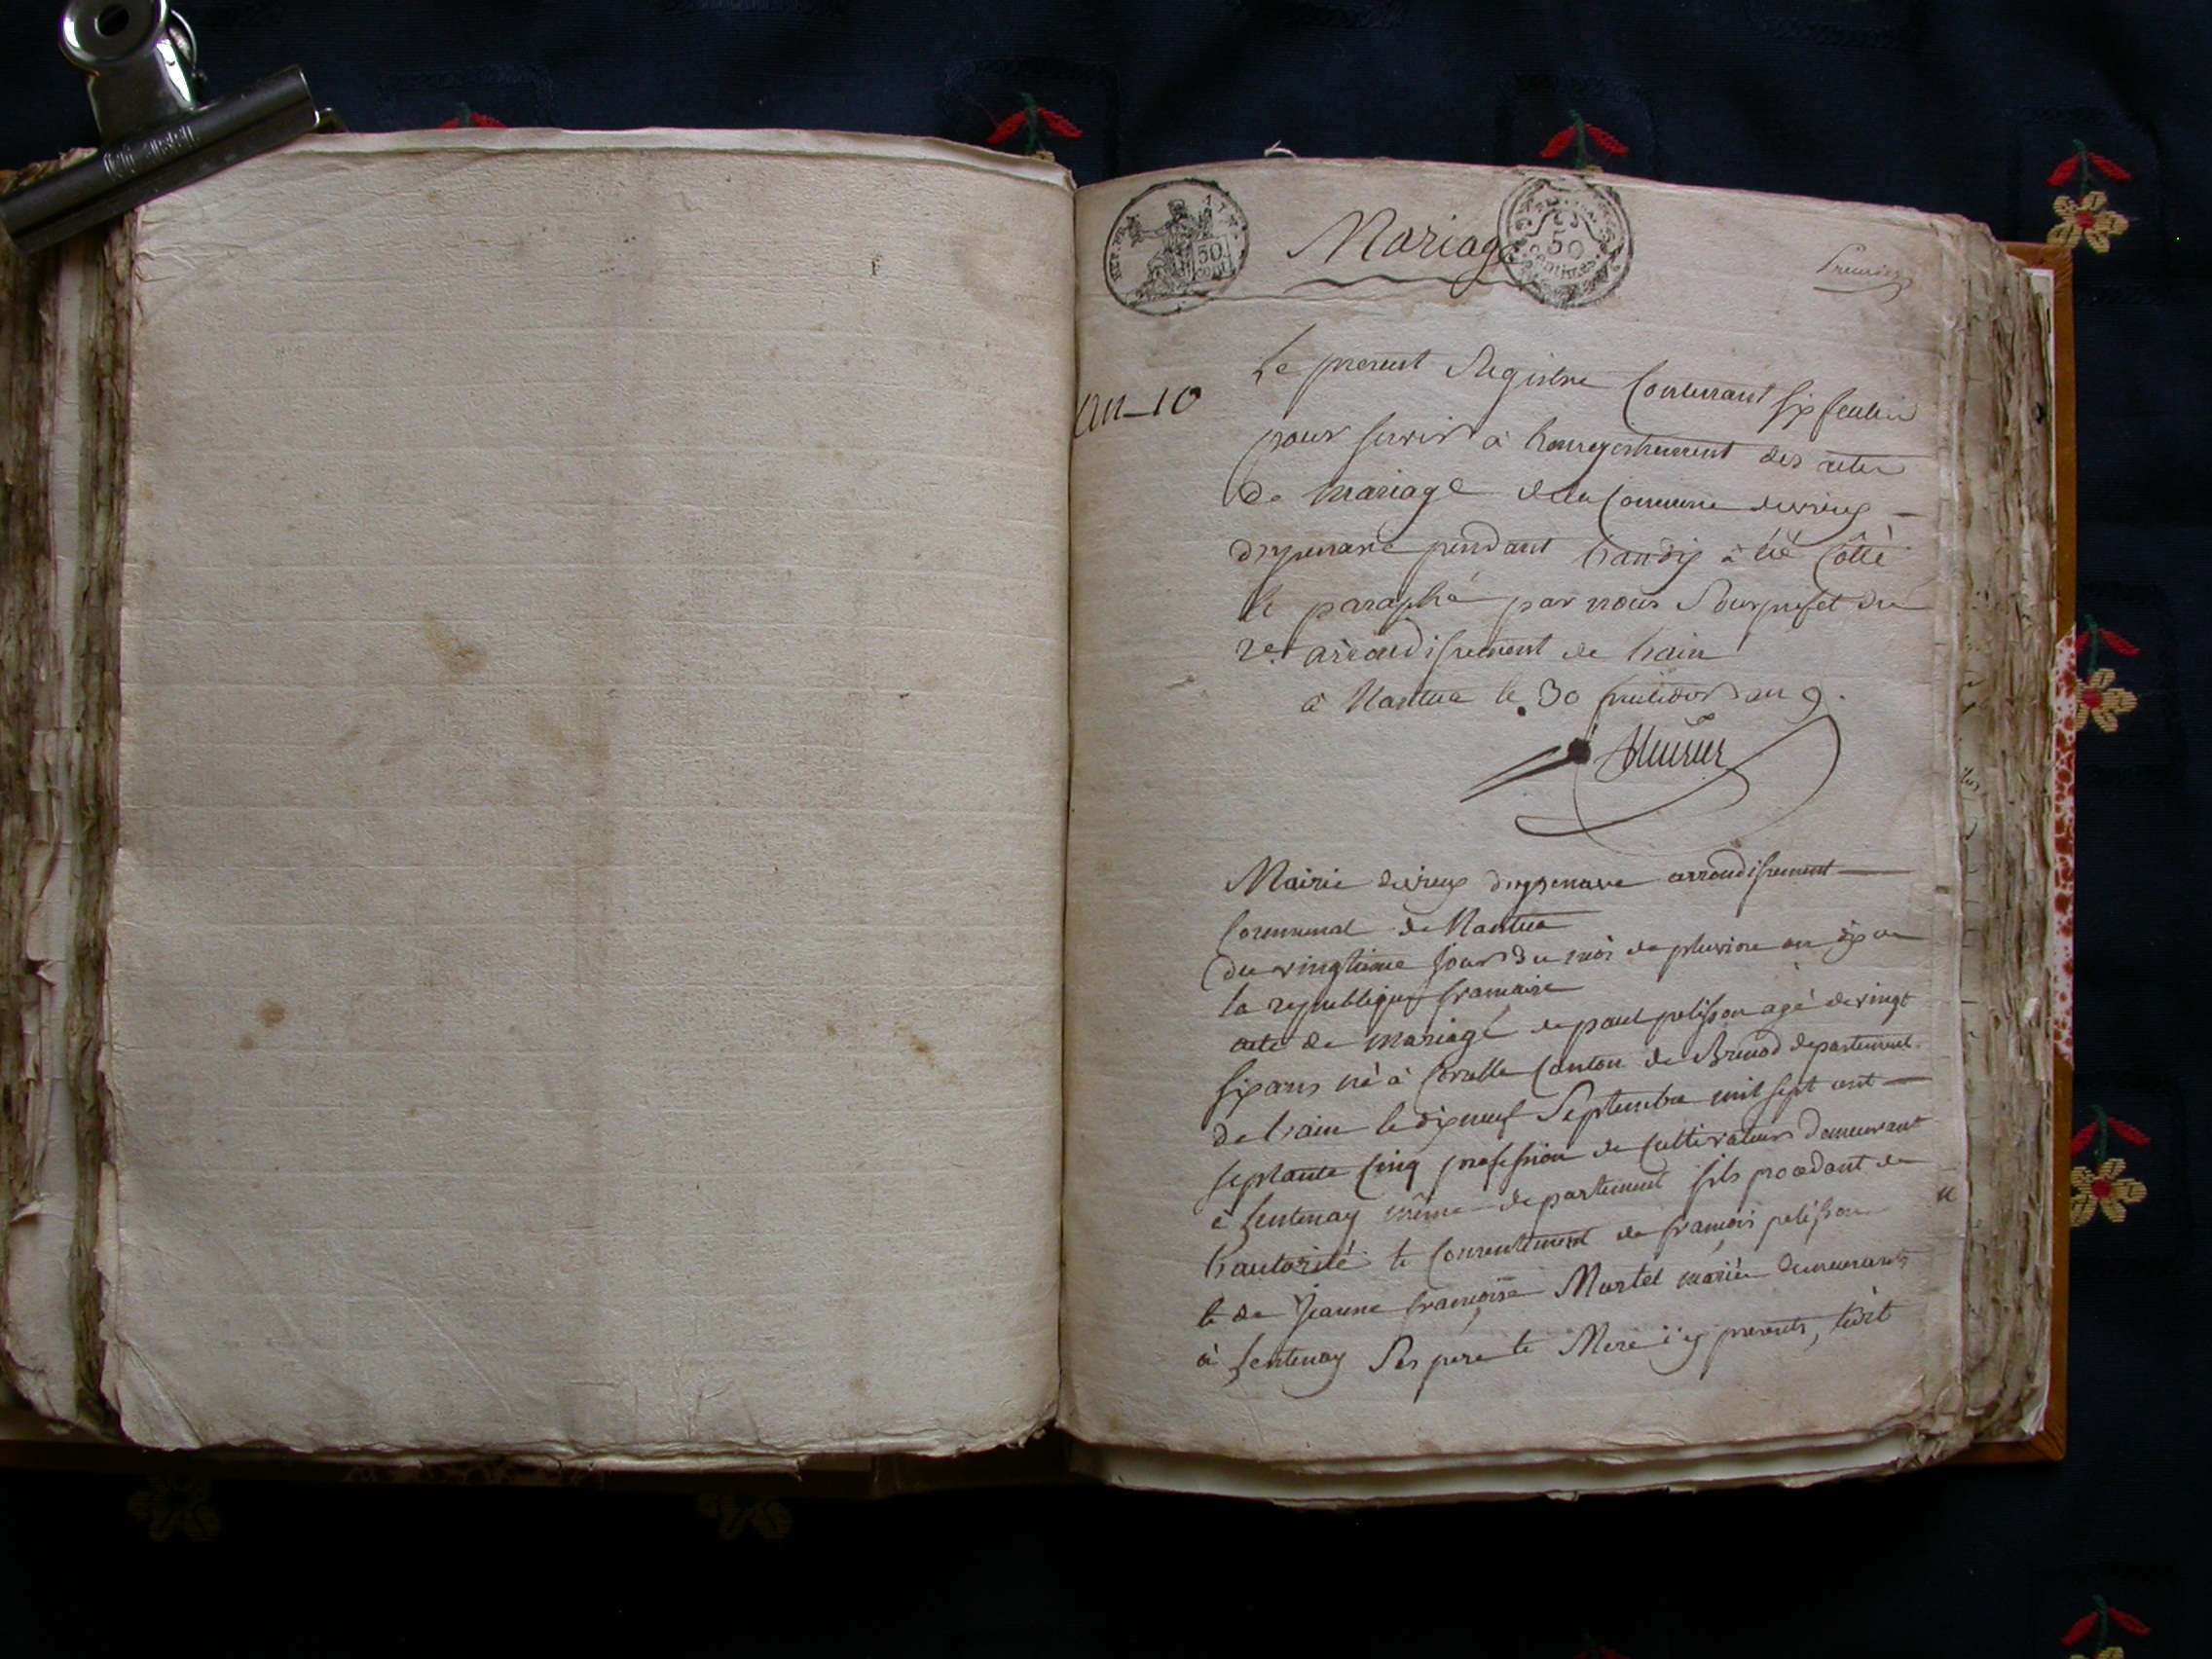 Mariage
REP. FRA
50
CENT
50
centimes
Premier
an-10
Le present Registre Contenant six feulies
pour servir a l'enregistrement des actes
de mariage de la Commune de vieux
dizenave pendant l'an dix à été Côtté
et paraphé par nous Sousprefet du
2e. arrondissement de l'ain
à Nantua le 30 fructidor an 9.
Mairie de vieux dizenave arrondissement
Communal de Nantua
du vingtieme jour du moi de pluviose an dix de
la republique francaise
acte de mariage de paul pelisson agé de vingt
six ans né à Corcelle Canton de Brenod departement
de l'ain le dix neuf Septembre mil sept cent
septante Cinq profession de Cultivateur demeurant
à Lentenay même departement fils procedant de
l'autorité et Consentement de francois pelisson
et de Jeanne francoise Martel mariés demeurants
à Lentenay Ses pere et Mere icy presents, soit